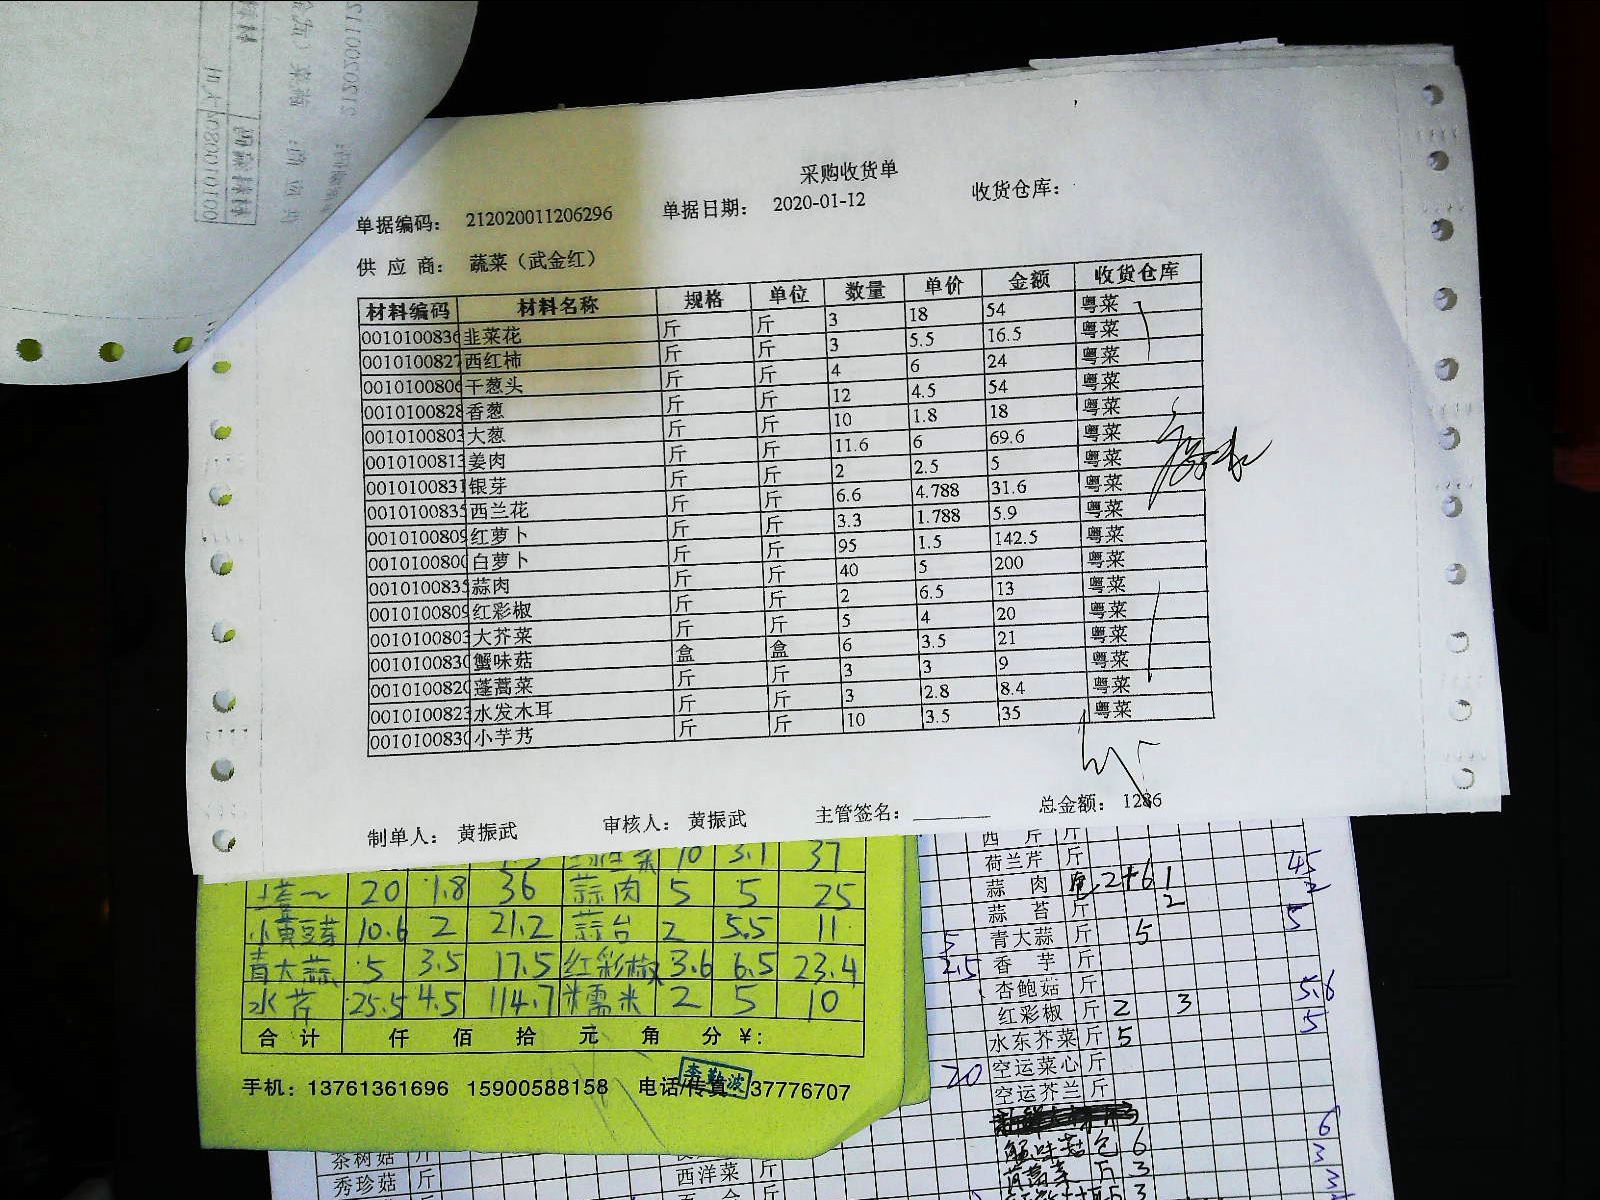 采购收货单
单据编码: 212020011206296 单据日期: 2020-01-12 收货仓库:
供 应 商: 蔬菜（武金红）
材料编码 材料名称 规格 单位 数量 单价 金额 收货仓库
0010100836 韭菜花 斤 斤 3 18 54 粤菜
0010100827 西红柿 斤 斤 3 5.5 16.5 粤菜
0010100806 干葱头 斤 斤 4 6 24 粤菜
0010100828 香葱 斤 斤 12 4.5 54 粤菜
0010100803 大葱 斤 斤 10 1.8 18 粤菜
0010100813 姜肉 斤 斤 11.6 6 69.6 粤菜
0010100831 银芽 斤 斤 2 2.5 5 粤菜
0010100835 西兰花 斤 斤 6.6 4.788 31.6 粤菜
0010100809 红萝卜 斤 斤 3.3 1.788 5.9 粤菜
0010100800 白萝卜 斤 斤 95 1.5 142.5 粤菜
0010100835 蒜肉 斤 斤 40 5 200 粤菜
0010100809 红彩椒 斤 斤 2 6.5 13 粤菜
0010100803 大芥菜 斤 斤 5 4 20 粤菜
0010100830 蟹味菇 盒 盒 6 3.5 21 粤菜
0010100820 蓬蒿菜 斤 斤 3 3 9 粤菜
0010100823 水发木耳 斤 斤 3 2.8 8.4 粤菜
0010100830 小芋艿 斤 斤 10 3.5 35 粤菜
制单人: 黄振武 审核人: 黄振武 主管签名: 总金额: 1286
10 3.1 37
20 1.8 36 蒜肉 5 5 25
小黄豆芽 10.6 2 21.2 蒜台 2 5.5 11
青大蒜 5 3.5 17.5 红彩椒 3.6 6.5 23.4
水芹 25.5 4.5 114.7 糯米 2 5 10
合 计 仟 佰 拾 元 角 分 ¥:
手机: 13761361696 15900588158 电话/传真: 37776707
李勤波
西 芹 斤
荷兰芹 斤 45
蒜 肉 2+6 1 2
蒜 苔 斤 2
5 青大蒜 斤 5 5
2.5 香 芋 斤
杏鲍菇 斤
红彩椒 斤 2 3 5.6
水东芥菜 斤 5 5
20 空运菜心 斤
空运芥兰 斤
蟹味菇 包 6 6
茼蒿菜 斤 3 3
茶树菇 斤
秀珍菇 斤
西洋菜 斤